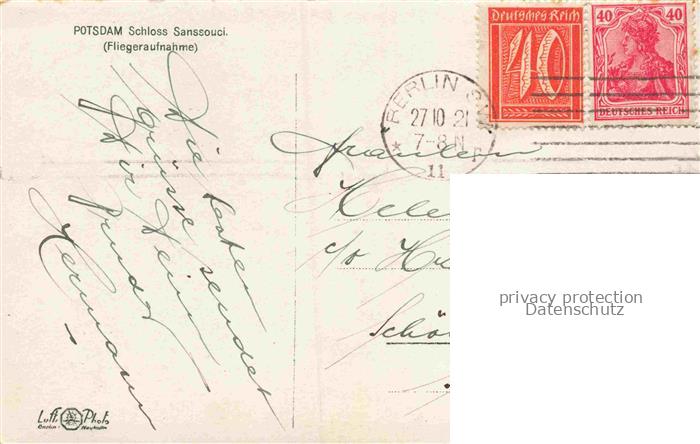 POTSDAM Schloss Sanssouci.
(Fliegeraufnahme)
Deutsches Reich
10
40 40
DEUTSCHES REICH
BERLIN
27 10 21
7-8 N
11
Die besten
Grüsse sendet
Dir Dein
Bruder
Hermann
Fräulein
Hele
c/o
Schö
privacy protection
Datenschutz
Luft Photo
Berlin-